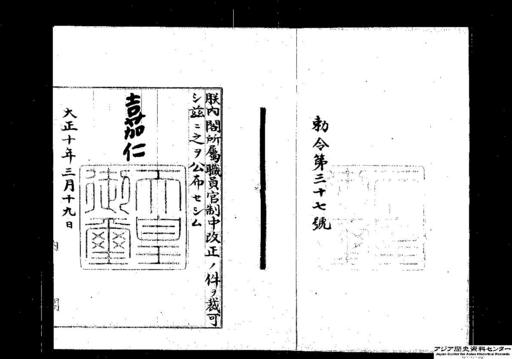 勅令第三十七號
朕內閣所屬職員官制中改正ノ件ヲ裁可
シ茲ニ之ヲ公布セシム
嘉仁
天皇御璽
大正十年三月十九日
内閣
アジア歴史資料センター
Japan Center for Asian Historical Records